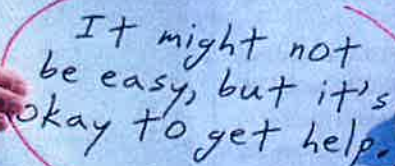 It might not
be easy, but it's
okay to get help.